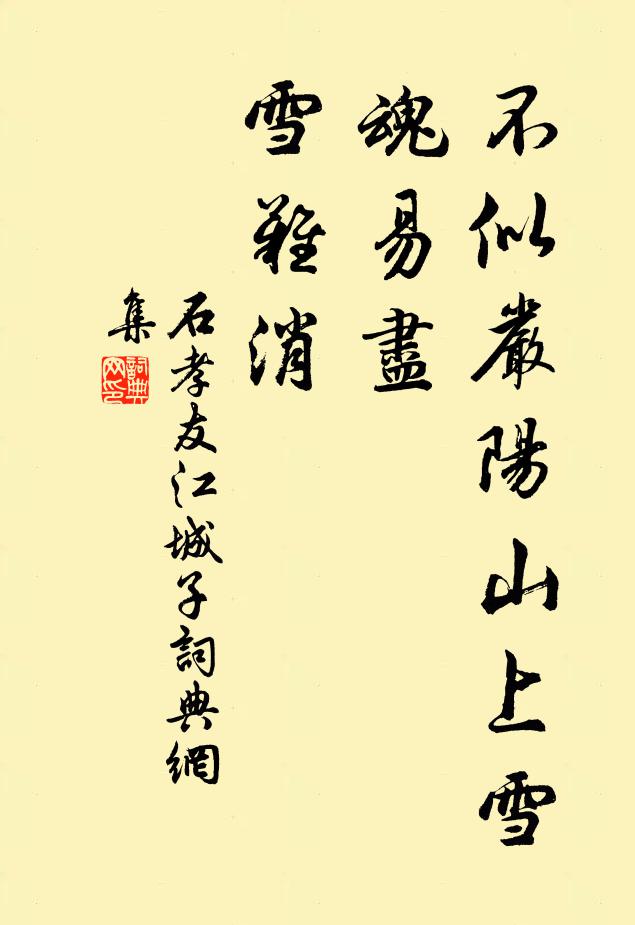 不似嚴陽山上雪
魂易盡
雪難消
石孝友江城子詞典網
集
詞典
网印